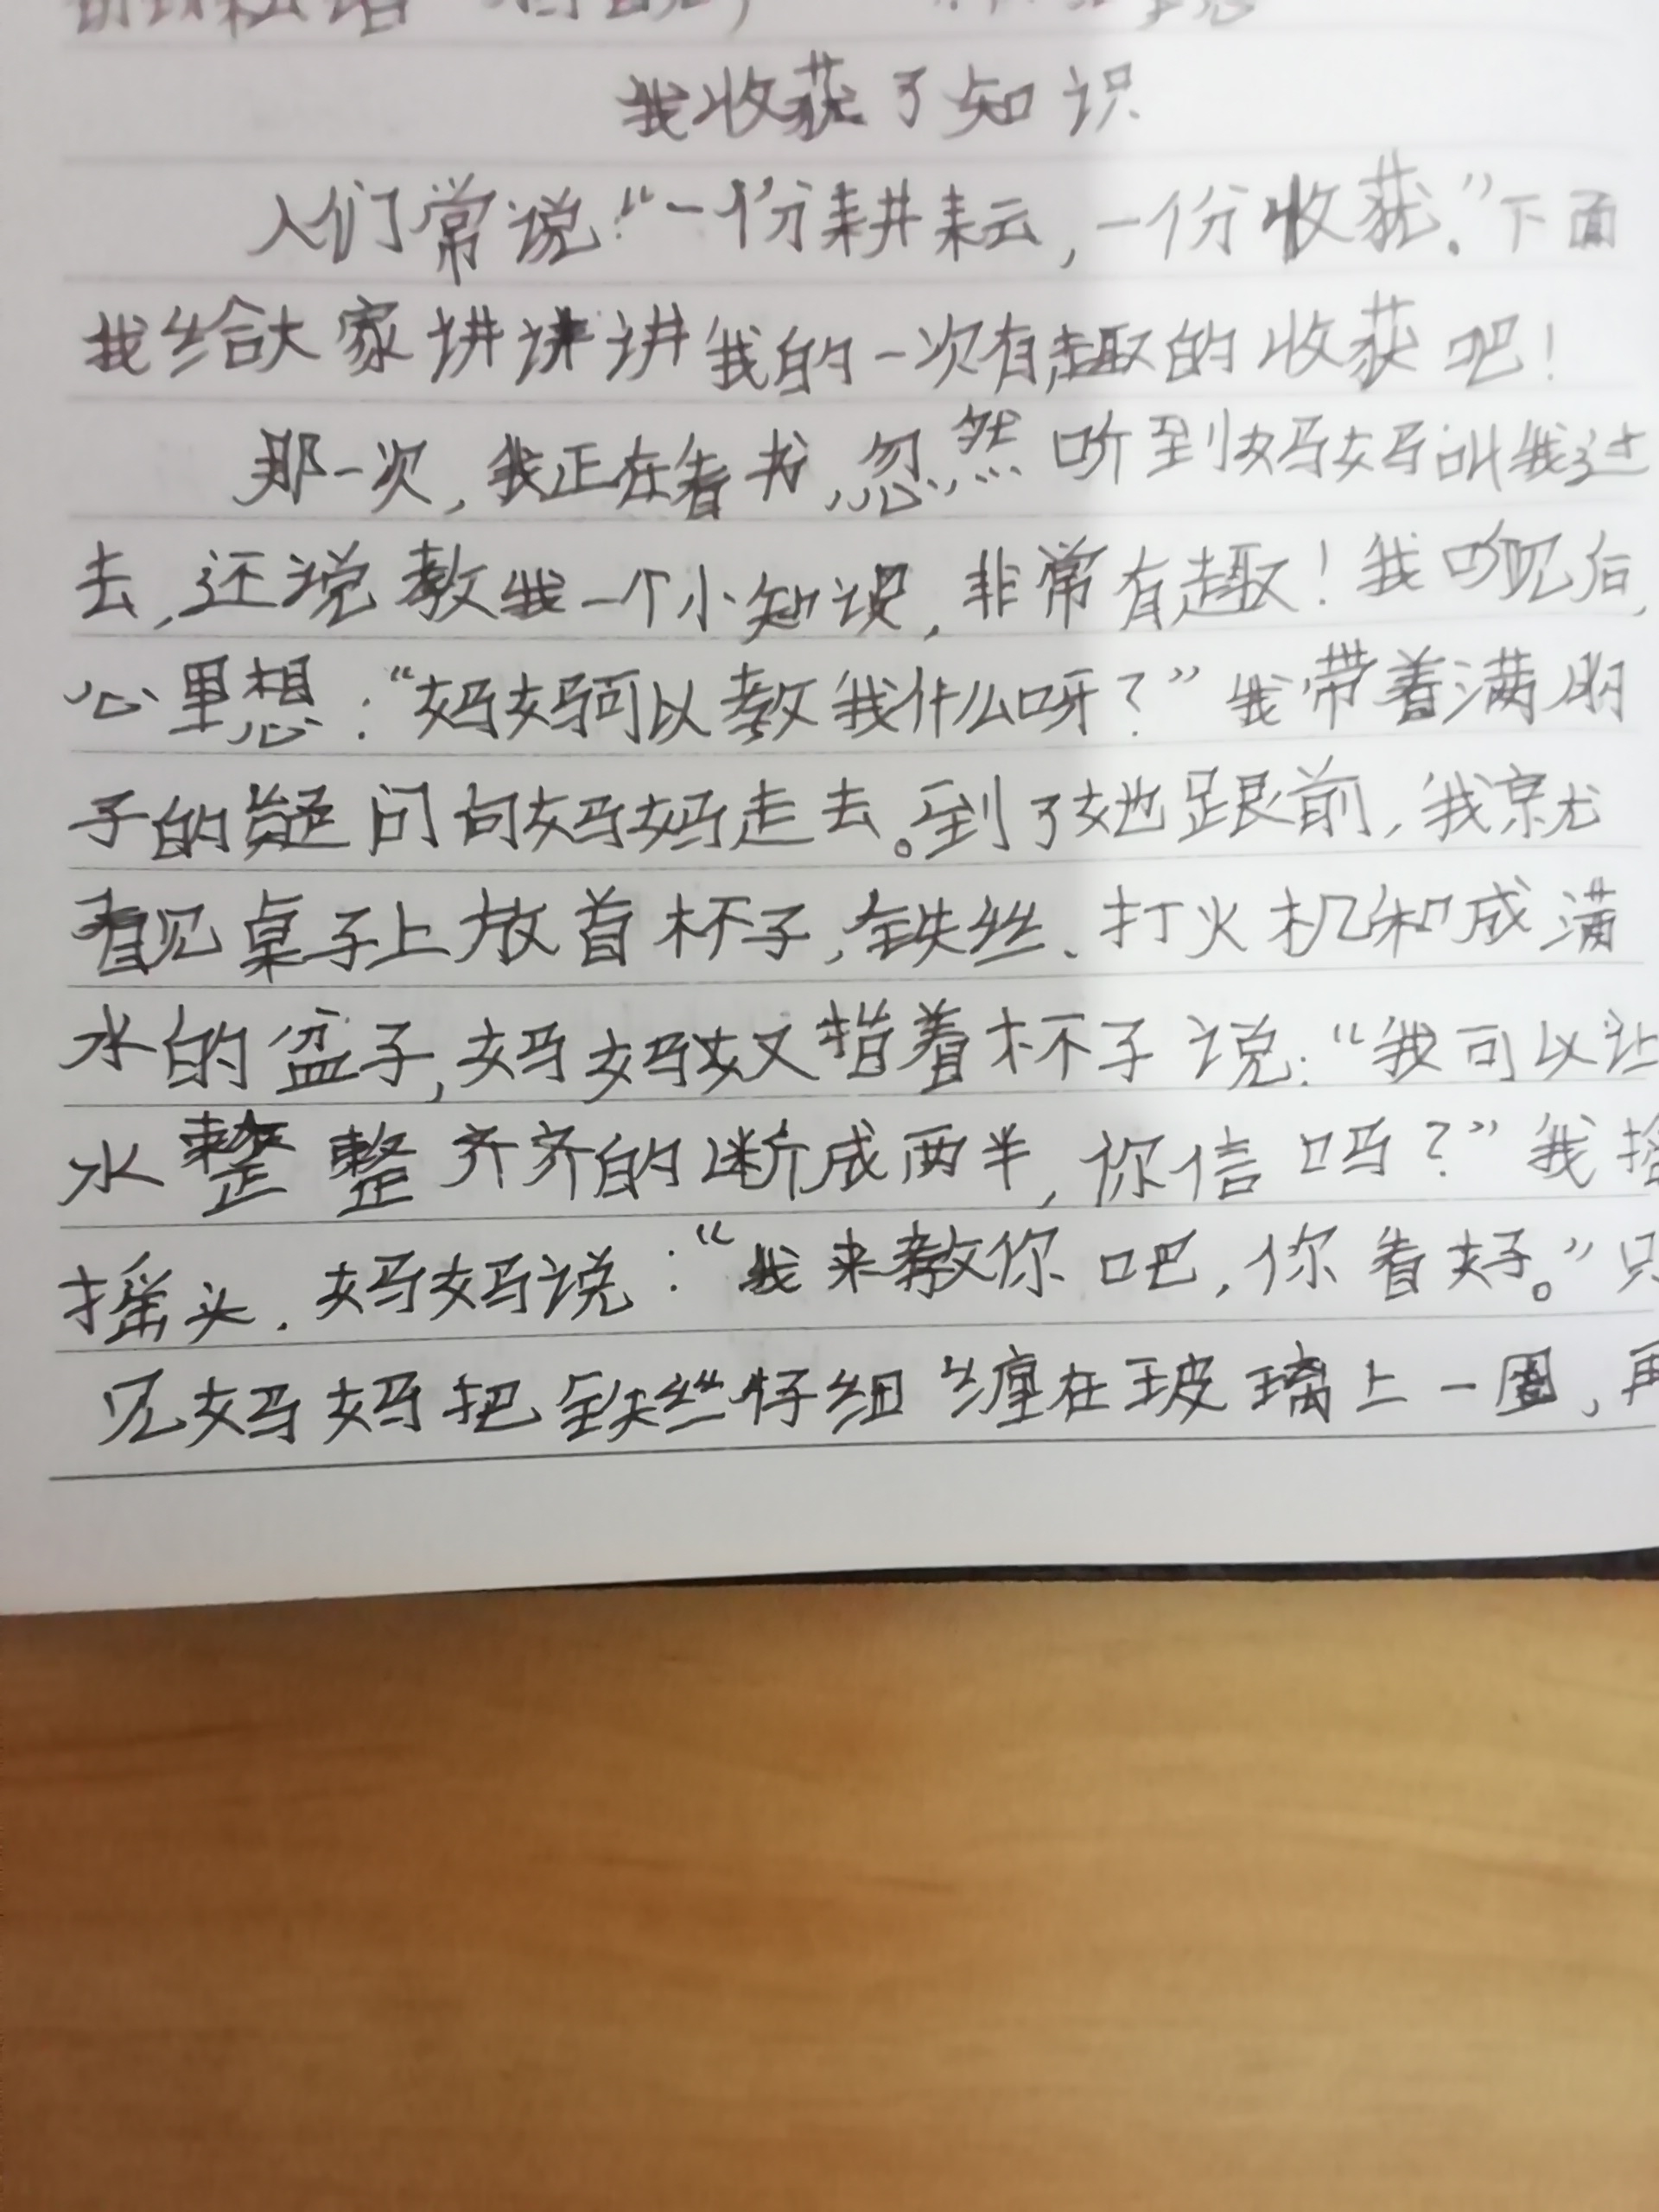 我收获了知识
人们常说:“一份耕耘,一份收获。”下面
我给大家讲讲讲我的一次有趣的收获吧!
那一次,我正在看书,忽然听到妈妈叫我过
去,还说教我一个小知识,非常有趣!我听见后,
心里想:“妈妈可以教我什么呀?”我带着满肚
子的疑问向妈妈走去。到了她跟前,我就
看见桌子上放着杯子,铁丝、打火机和成满
水的盆子,妈妈又指着杯子说:“我可以让
水整整齐齐的断成两半,你信吗?”我摇
摇头.妈妈说:“我来教你吧,你看好。”只
见妈妈把铁丝仔细缠在玻璃上一圈,再